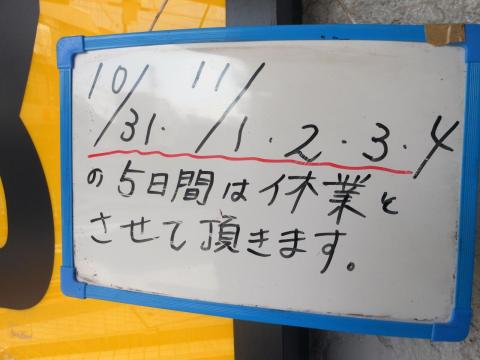 10/31. 11/1.2.3.4
の5日間は休業と
させて頂きます。